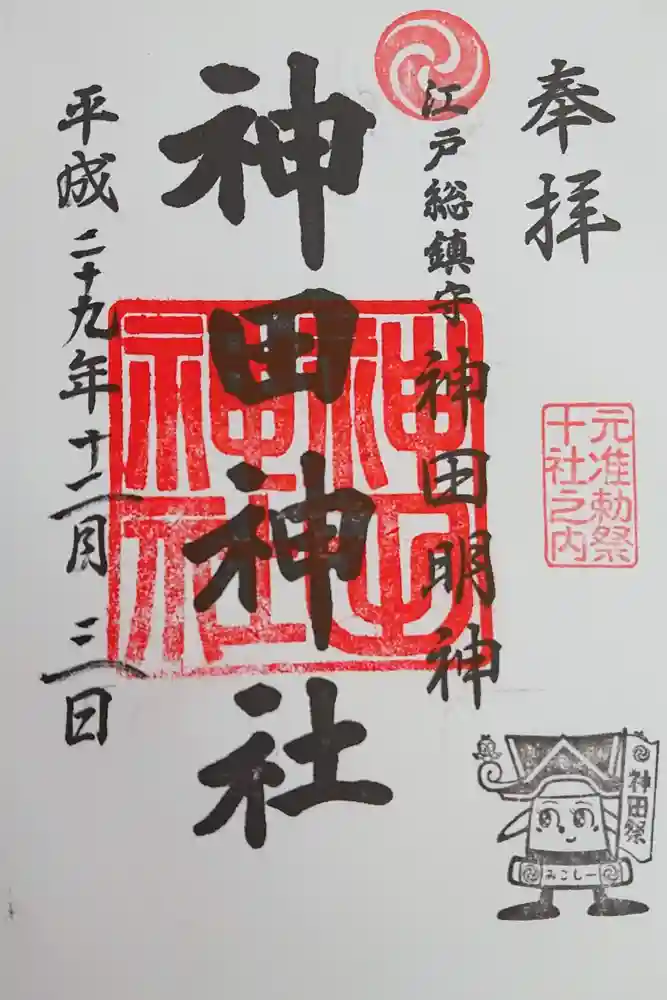 奉拝
元准勅祭
十社之内
江戸総鎮守 神田明神
神田神社
神田神社
平成二十九年十二月三日
神田祭
みこしー